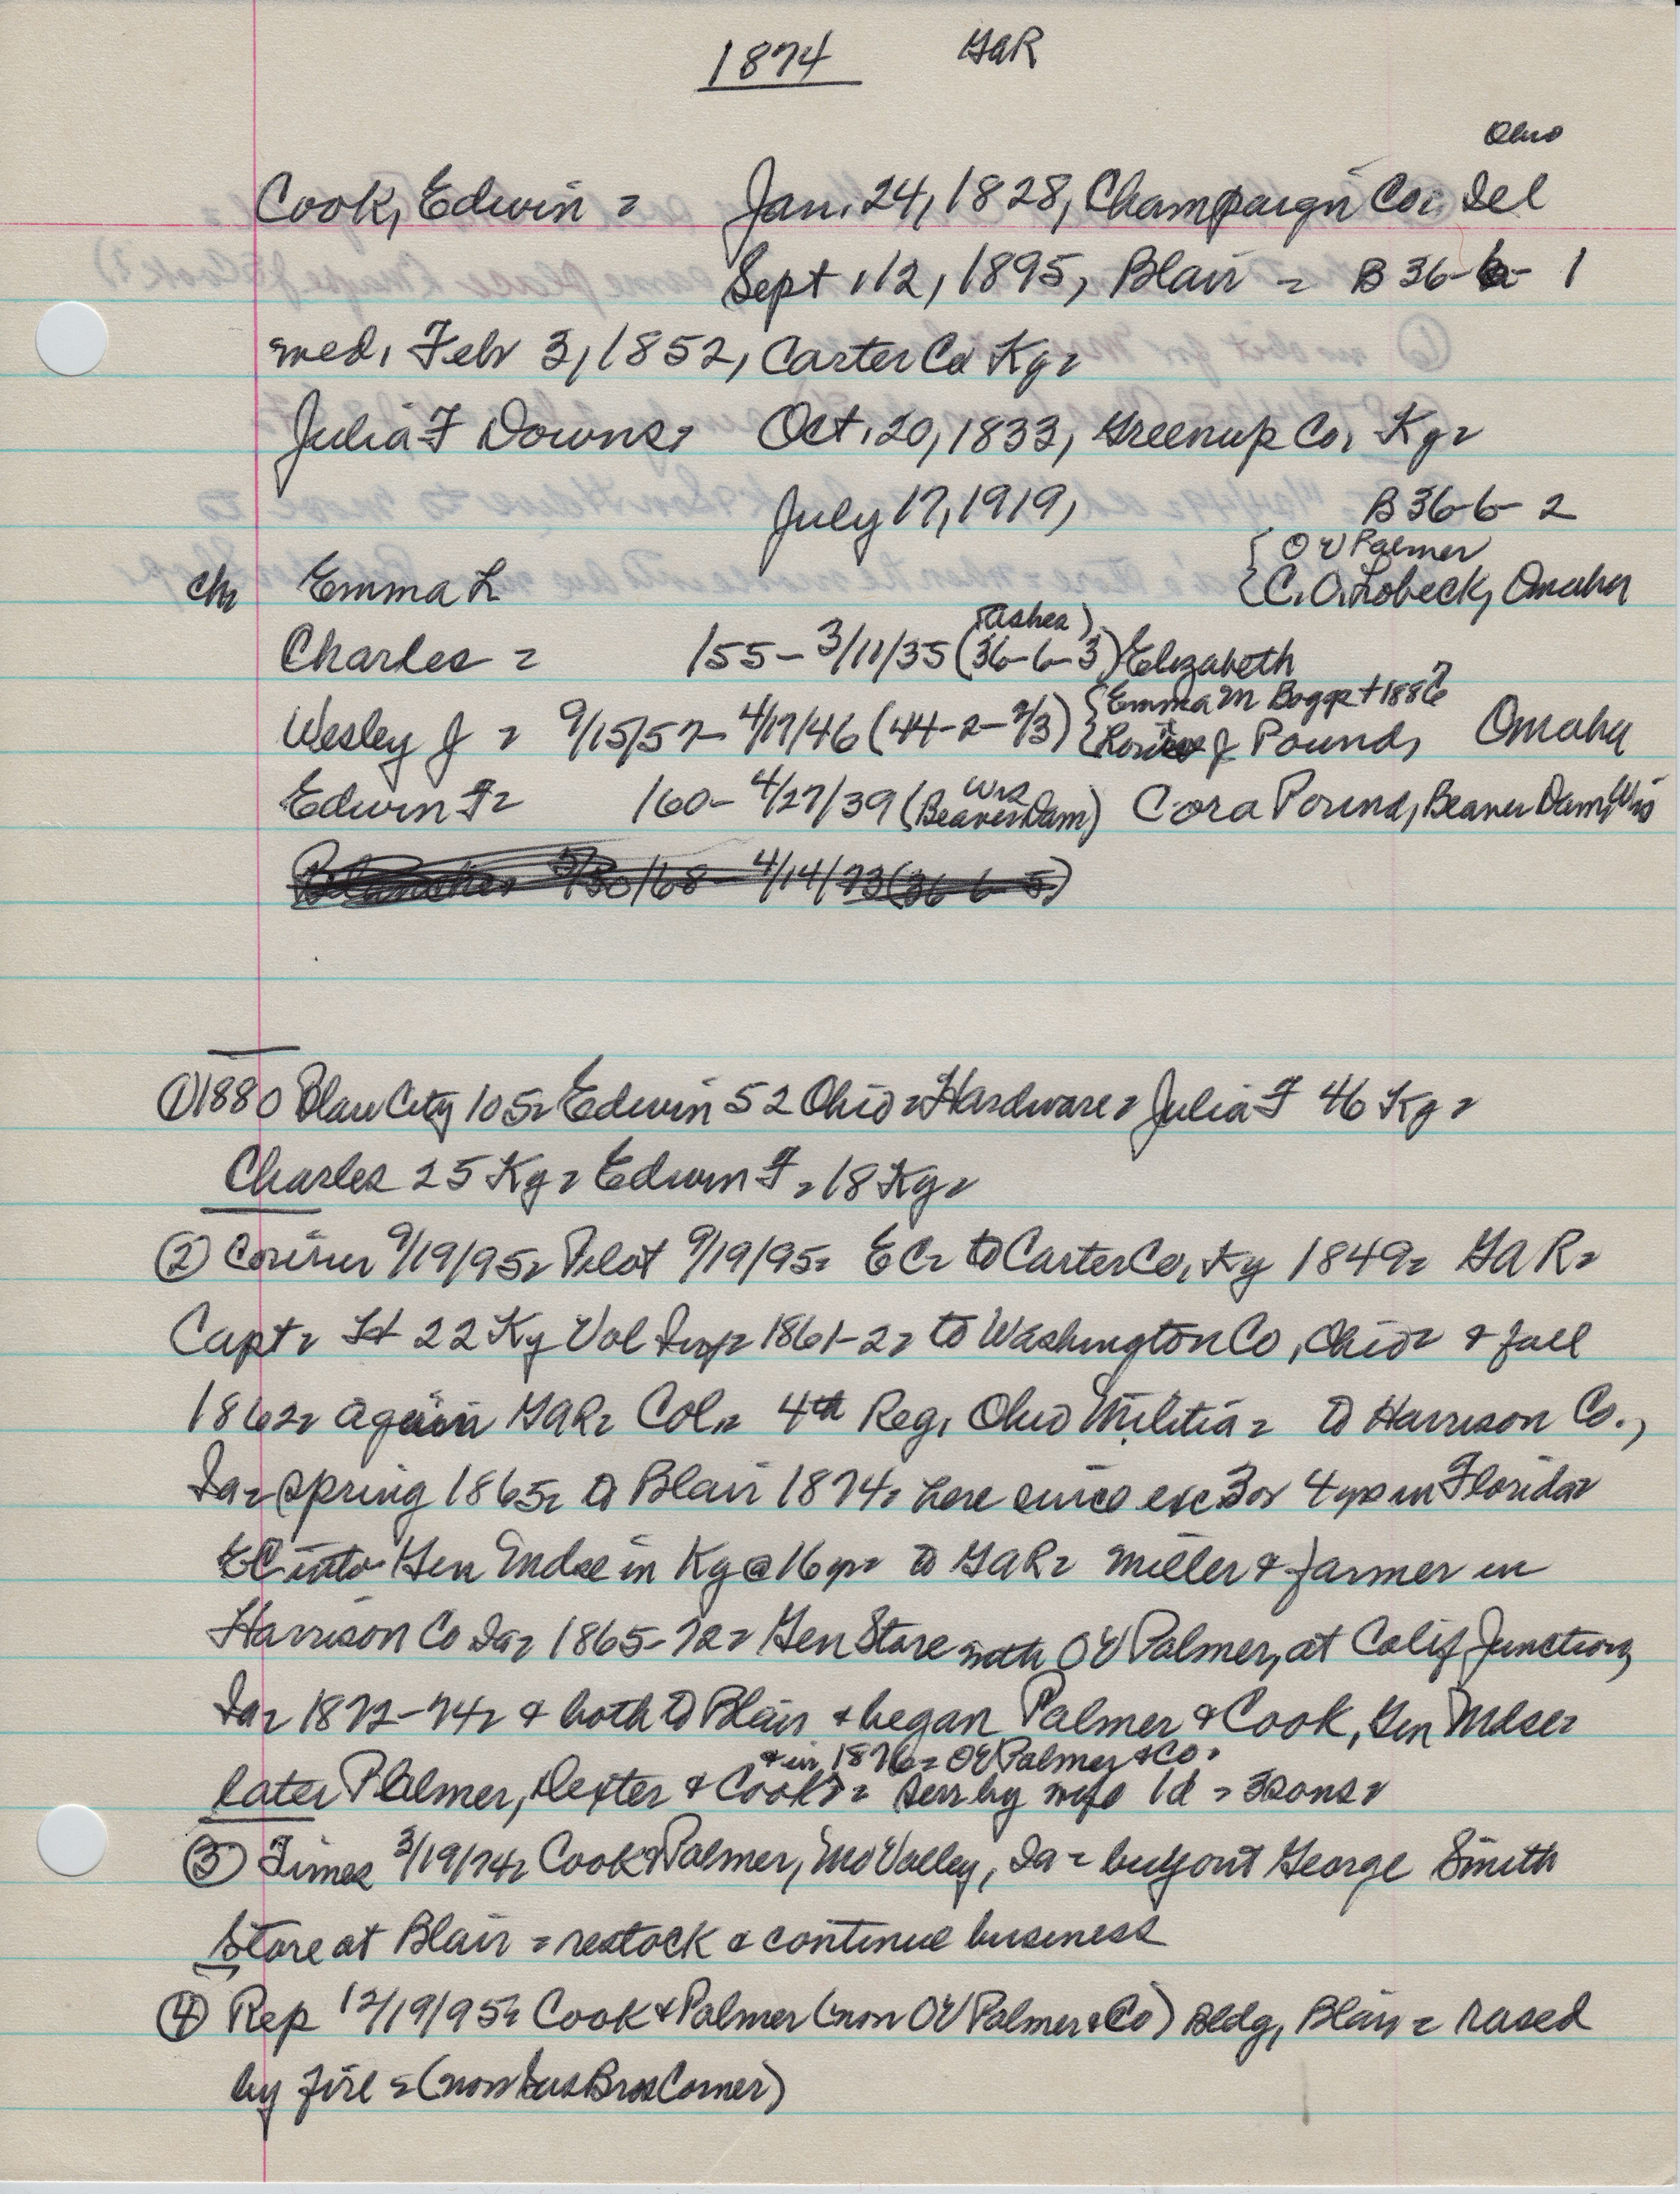 1874 GAR
Ohio
Cook, Edwin = Jan. 24, 1828, Champaign Co.
Sept. 12, 1895, Blair = B 36-6- 1
md. Feb 3, 1852, Carter Co Ky =
Julia F Downs, Oct. 20, 1833, Greenup Co, Ky =
July 17, 1919, B 36-6- 2
{ O V Palmer
ch Emma L { C. O. Lobeck, Omaha
(Ashes)
Charles = 155 - 3/11/35 (36-6-3) Elizabeth
{ Emma M Boggs + 1886?
Wesley J = 9/15/57 - 4/17/46 (44-2-2/3) { J Pound, Omaha
Wis
Edwin F = 160 - 4/27/39 (Beaver Dam) Cora Pound, Beaver Dam, Wis
Blanche 5/30/68 - 4/14/73 (36-6-5)
① 1880 Blair City 105 = Edwin 52 Ohio = Hardware = Julia F 46 Ky =
Charles 25 Ky = Edwin F = 18 Ky =
② Courier 9/19/95 = Pilot 9/19/95 = EC = to Carter Co, Ky 1849 = GAR =
Capt = 22 Ky Vol Inf = 1861-2 = to Washington Co, Ohio = & fall
1862 = again GAR = Col = 4th Reg, Ohio Militia = to Harrison Co.,
Ia = spring 1865 = to Blair 1874 = here since exc 3 or 4 yrs in Florida =
EC into Gen Mdse in Ky @ 16 yr = to GAR = miller & farmer in
Harrison Co Ia = 1865-72 = Gen Store with OV Palmer, at Calif Junction,
Ia = 1872-74 = & both to Blair & began Palmer & Cook, Gen Mdse =
& in 1876 = OV Palmer & Co.
later Palmer, Dexter & Cook = Surv by wife 1d = 3 sons =
③ Times 3/19/74 = Cook & Palmer, Mo Valley, Ia = buy out George Smith
Store at Blair = restock & continue business
④ Rep 12/19/95 = Cook & Palmer (now OV Palmer & Co) Bldg, Blair = rased
by fire = (now Bros Corner)